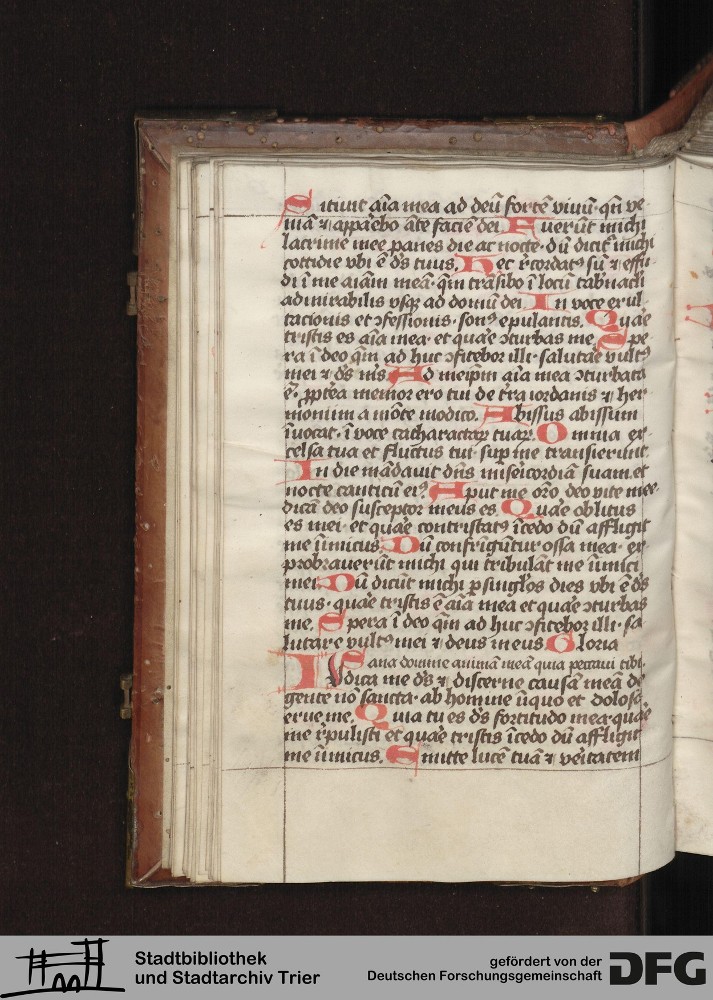 Sitiuit aīa mea ad deū fortē viuū· qn̄ ve
niā ⁊ apparebo āte faciē dei. Fuerūt michi
lacrime mee panes die ac nocte· dū dicit᷑ michi
cottidie vbi ē ds̄ tuus. Hec r̄cordatꝰ sū ⁊ effu
di ī me aīam meā· qm̄ trāsibo ī locū tab'nacli
admirabilis vsqꝫ ad domū dei In voce exul
tacionis et ↄfessionis· sonꝰ epulantis. Quare
tristis es aīa mea· et quare ↄturbas me. Spe
ra ī deo qm̄ ad huc ↄfitebor illi· salutare vultꝰ
mei ⁊ ds̄ mꝰs. Ad meip̄m aīa mea ↄturbata
ē· ꝓpt'ea memor ero tui de t'ra iordanis ⁊ her
moniim a mōte modico. Abissus abissum
īuocat· ī voce catharactaꝝ tuaꝝ. Omnia ex
celsa tua et fluctus tui· sup me transierunt.
In die mādauit dn̄s misericordiā suam. et
nocte canticū eiꝰ. Aput me or̄o deo vite mee·
dicā deo susceptor meus es Quare oblitus
es mei· et quare contristatꝰ īcedo dū affligit
me īimicus. Dū confrīgūtur ossa mea· ex
probrauerūt michi qui tribulāt me īimici
mei. Dū dicūt michi p singl'os dies vbi ē ds̄
tuus· quare tristis ē aīa mea et quare ↄturbas
me. Spera ī deo qm̄ ad huc ↄfitebor illi· sa
lutare vultꝰ mei ⁊ deus meus Gloria
Sana domine animā meā quia peccaui tibi.
IVdica me ds̄ ⁊ discerne causam meā de
gente nō sancta· ab homine īiquo et doloso
erue me. Quia tu es ds̄ fortitudo mea· quare
me r̄pulisti et quare tristis īcedo dū affligit
me īimicus. Emitte lucē tuā ⁊ veritatem
Stadtbibliothek
und Stadtarchiv Trier
gefördert von der
Deutschen Forschungsgemeinschaft DFG